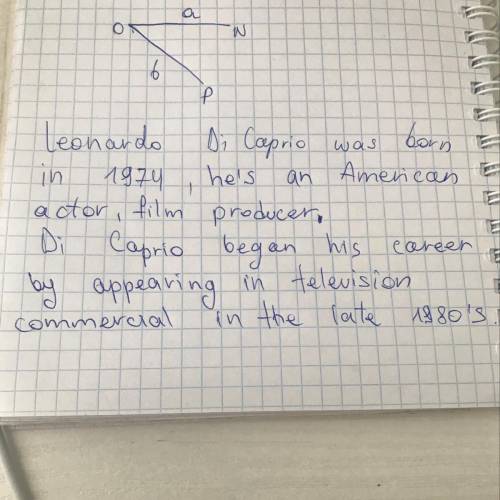 a
O N
b
P
Leonardo Di Caprio was born
in 1974, he's an American
actor, film producer.
Di Caprio began his career
by appearing in television
commercial in the late 1980's.